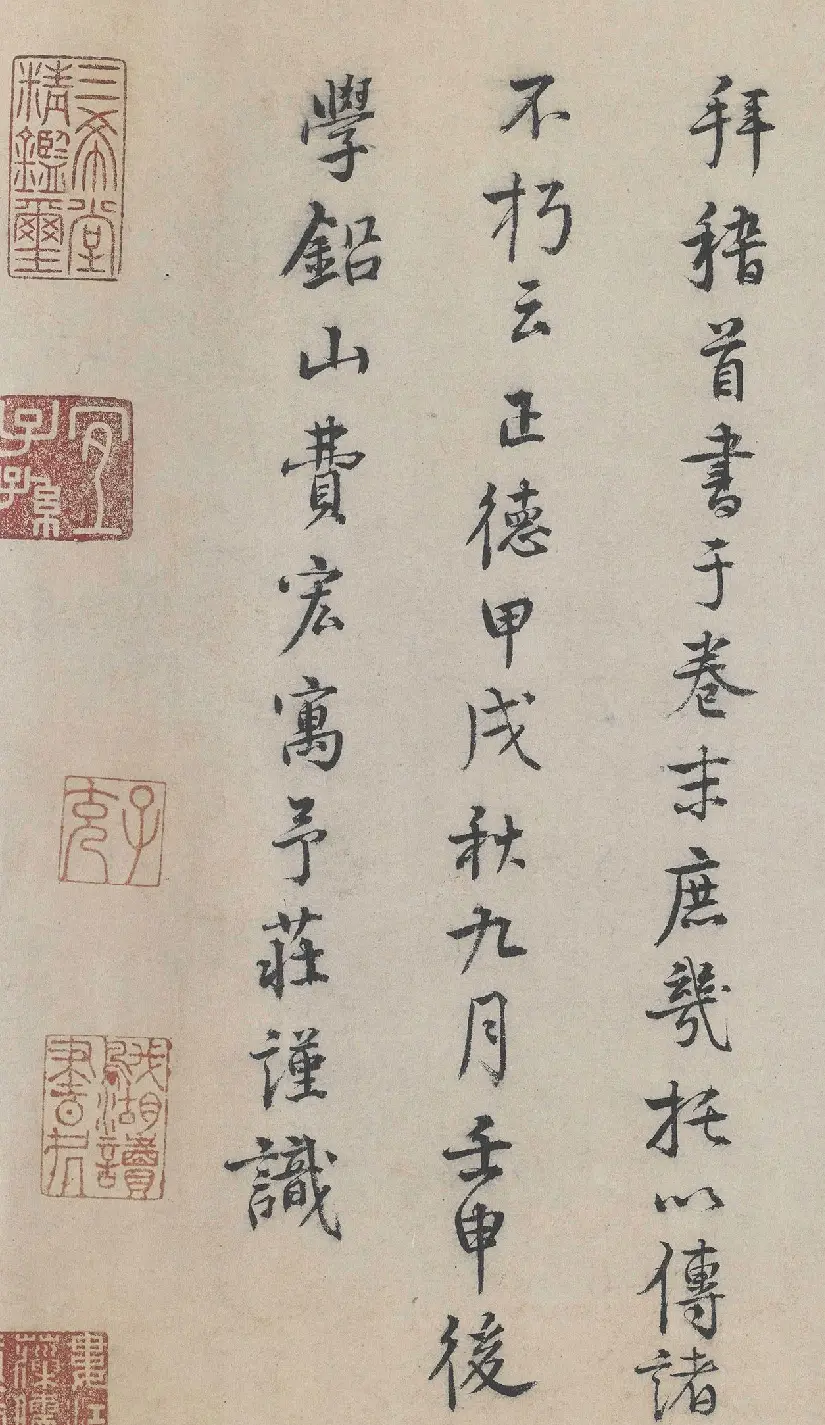 拜稽首書于卷末庶幾托以傳諸
不朽云正德甲戌秋九月壬申後
學鉛山費宏寓予莊謹識
三希堂
精鑑璽
宜
子孫
子
克